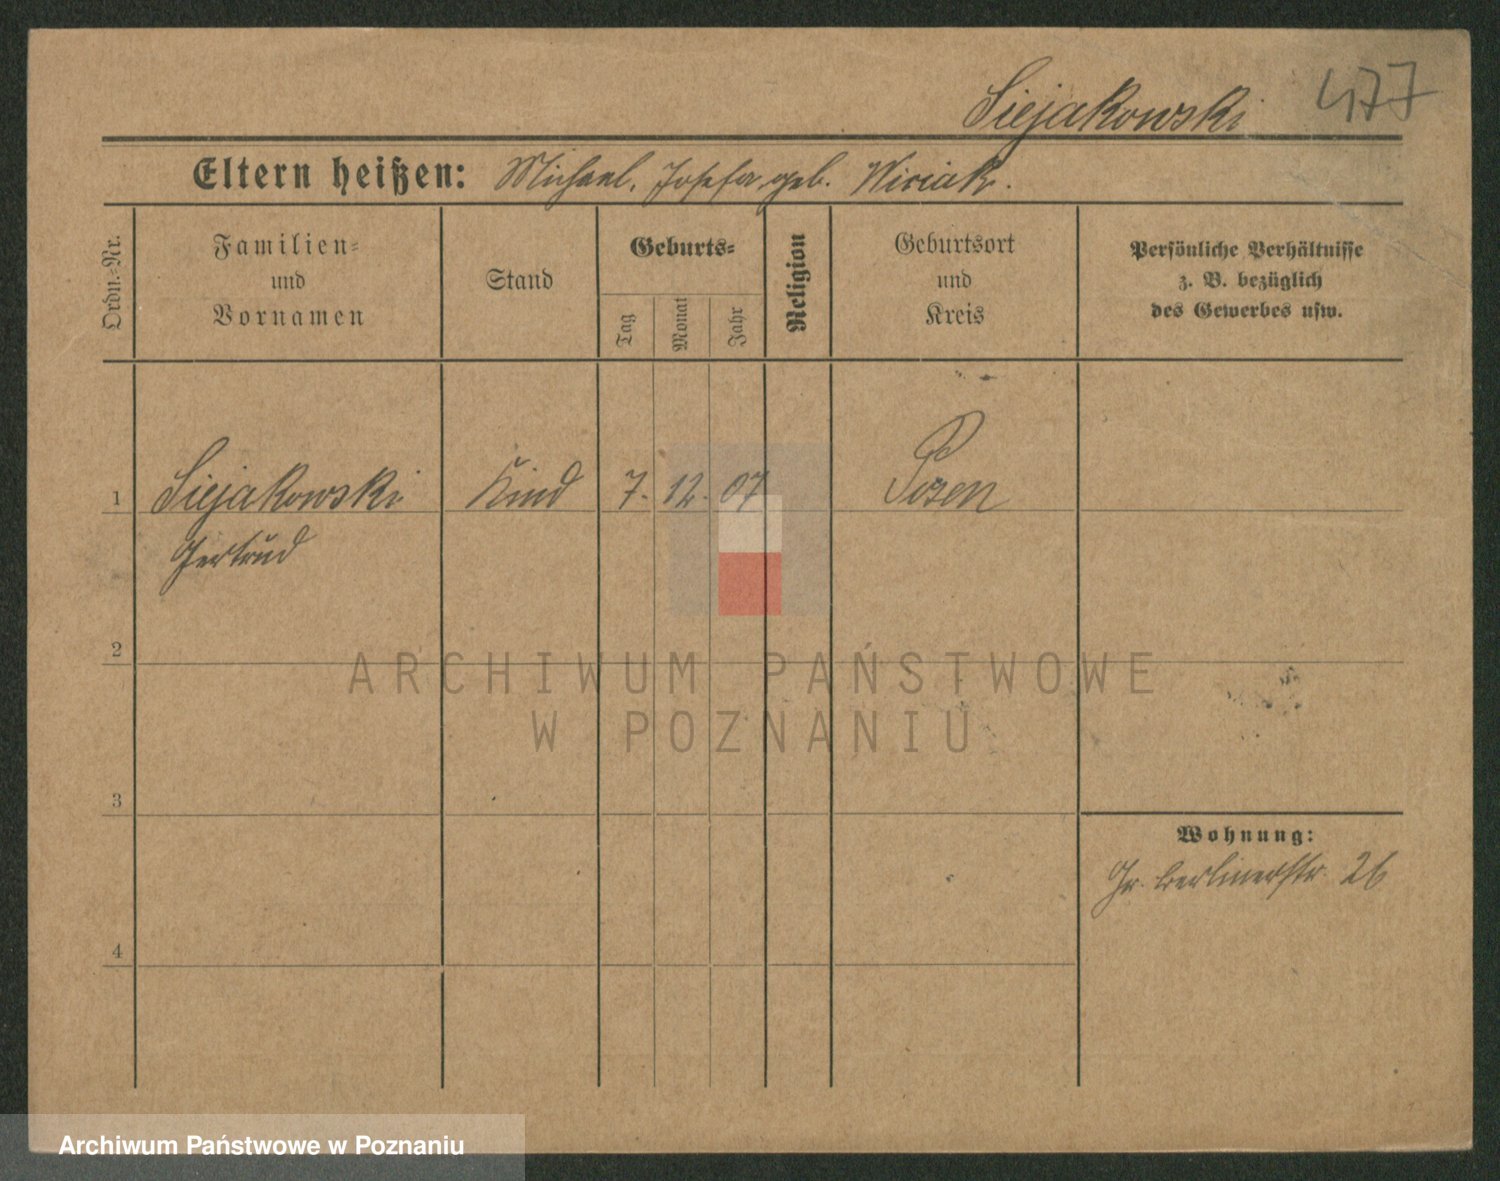 Siejakowski 477
Eltern heißen: Michael, Josefa geb. Wiciak.
Ordn.-Nr.
Familien-
und
Vornamen
Stand
Geburts-
Tag
Monat
Jahr
Religion
Geburtsort
und
Kreis
Persönliche Verhältnisse
z. B. bezüglich
des Gewerbes usw.
1 Siejakowski Kind 7. 12. 07 Posen
Gertrud
2
ARCHIWUM PAŃSTWOWE
W POZNANIU
3
Wohnung:
Gr. Berlinerstr. 26
4
Archiwum Państwowe w Poznaniu